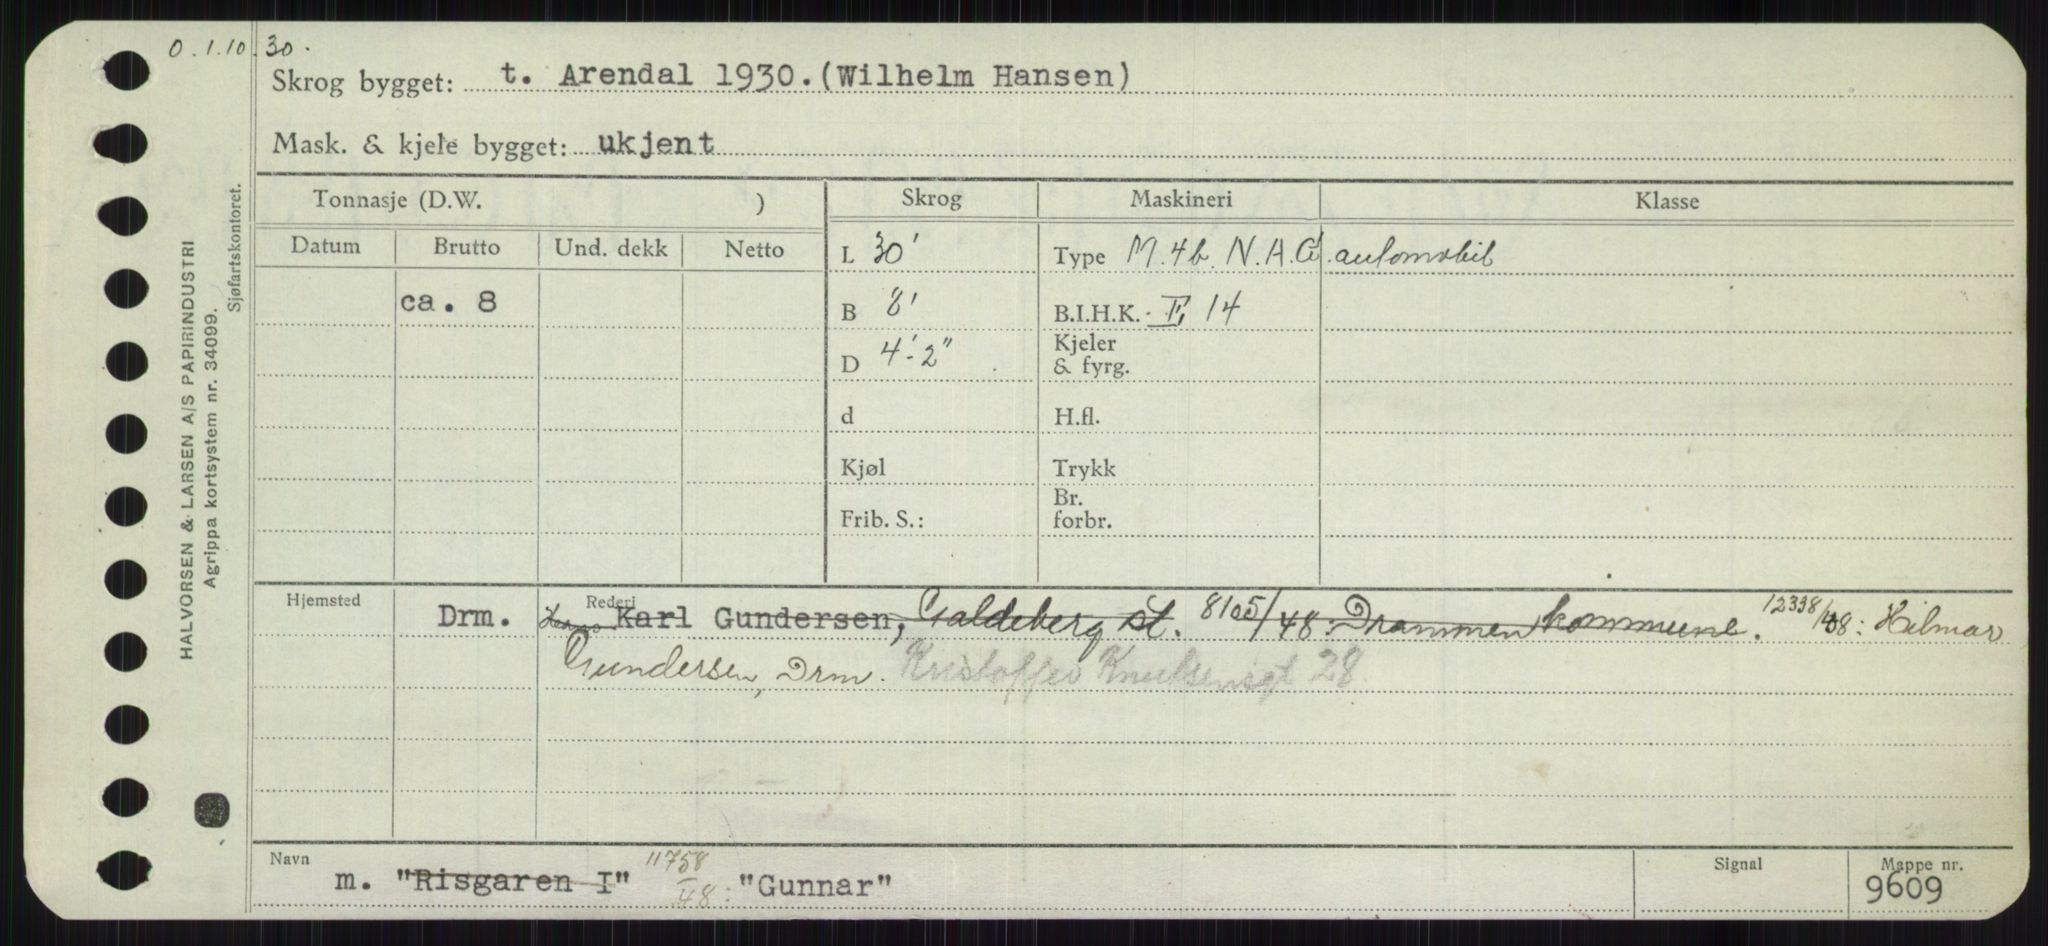 O. 1.10.30.
Skrog bygget: t. Arendal 1930. (Wilhelm Hansen)
Mask. & kjele bygget: ukjent
Tonnasje (D.W. ) Skrog Maskineri Klasse
Datum Brutto Und. dekk Netto
L 30' Type M. 4b. N.A.G. automobil
ca. 8
B 8' B.I.H.K. I, 14
D 4'-2" Kjeler & fyrg.
d H.fl.
Kjøl Trykk
Frib. S.: Br. forbr.
Hjemsted Rederi
Drm. Karl Gundersen, Galdeberg st. 8105/48: Drammen kommune. 12338/48: Hilmar
Gundersen, Drm. Kristoffer Knudsensgt 28
Navn Signal Mappe nr.
m. "Risgaren I" 11758/48: "Gunnar" 9609
HALVORSEN & LARSEN A/S PAPIRINDUSTRI
Agrippa kortsystem nr. 34099.
Sjøfartskontoret.